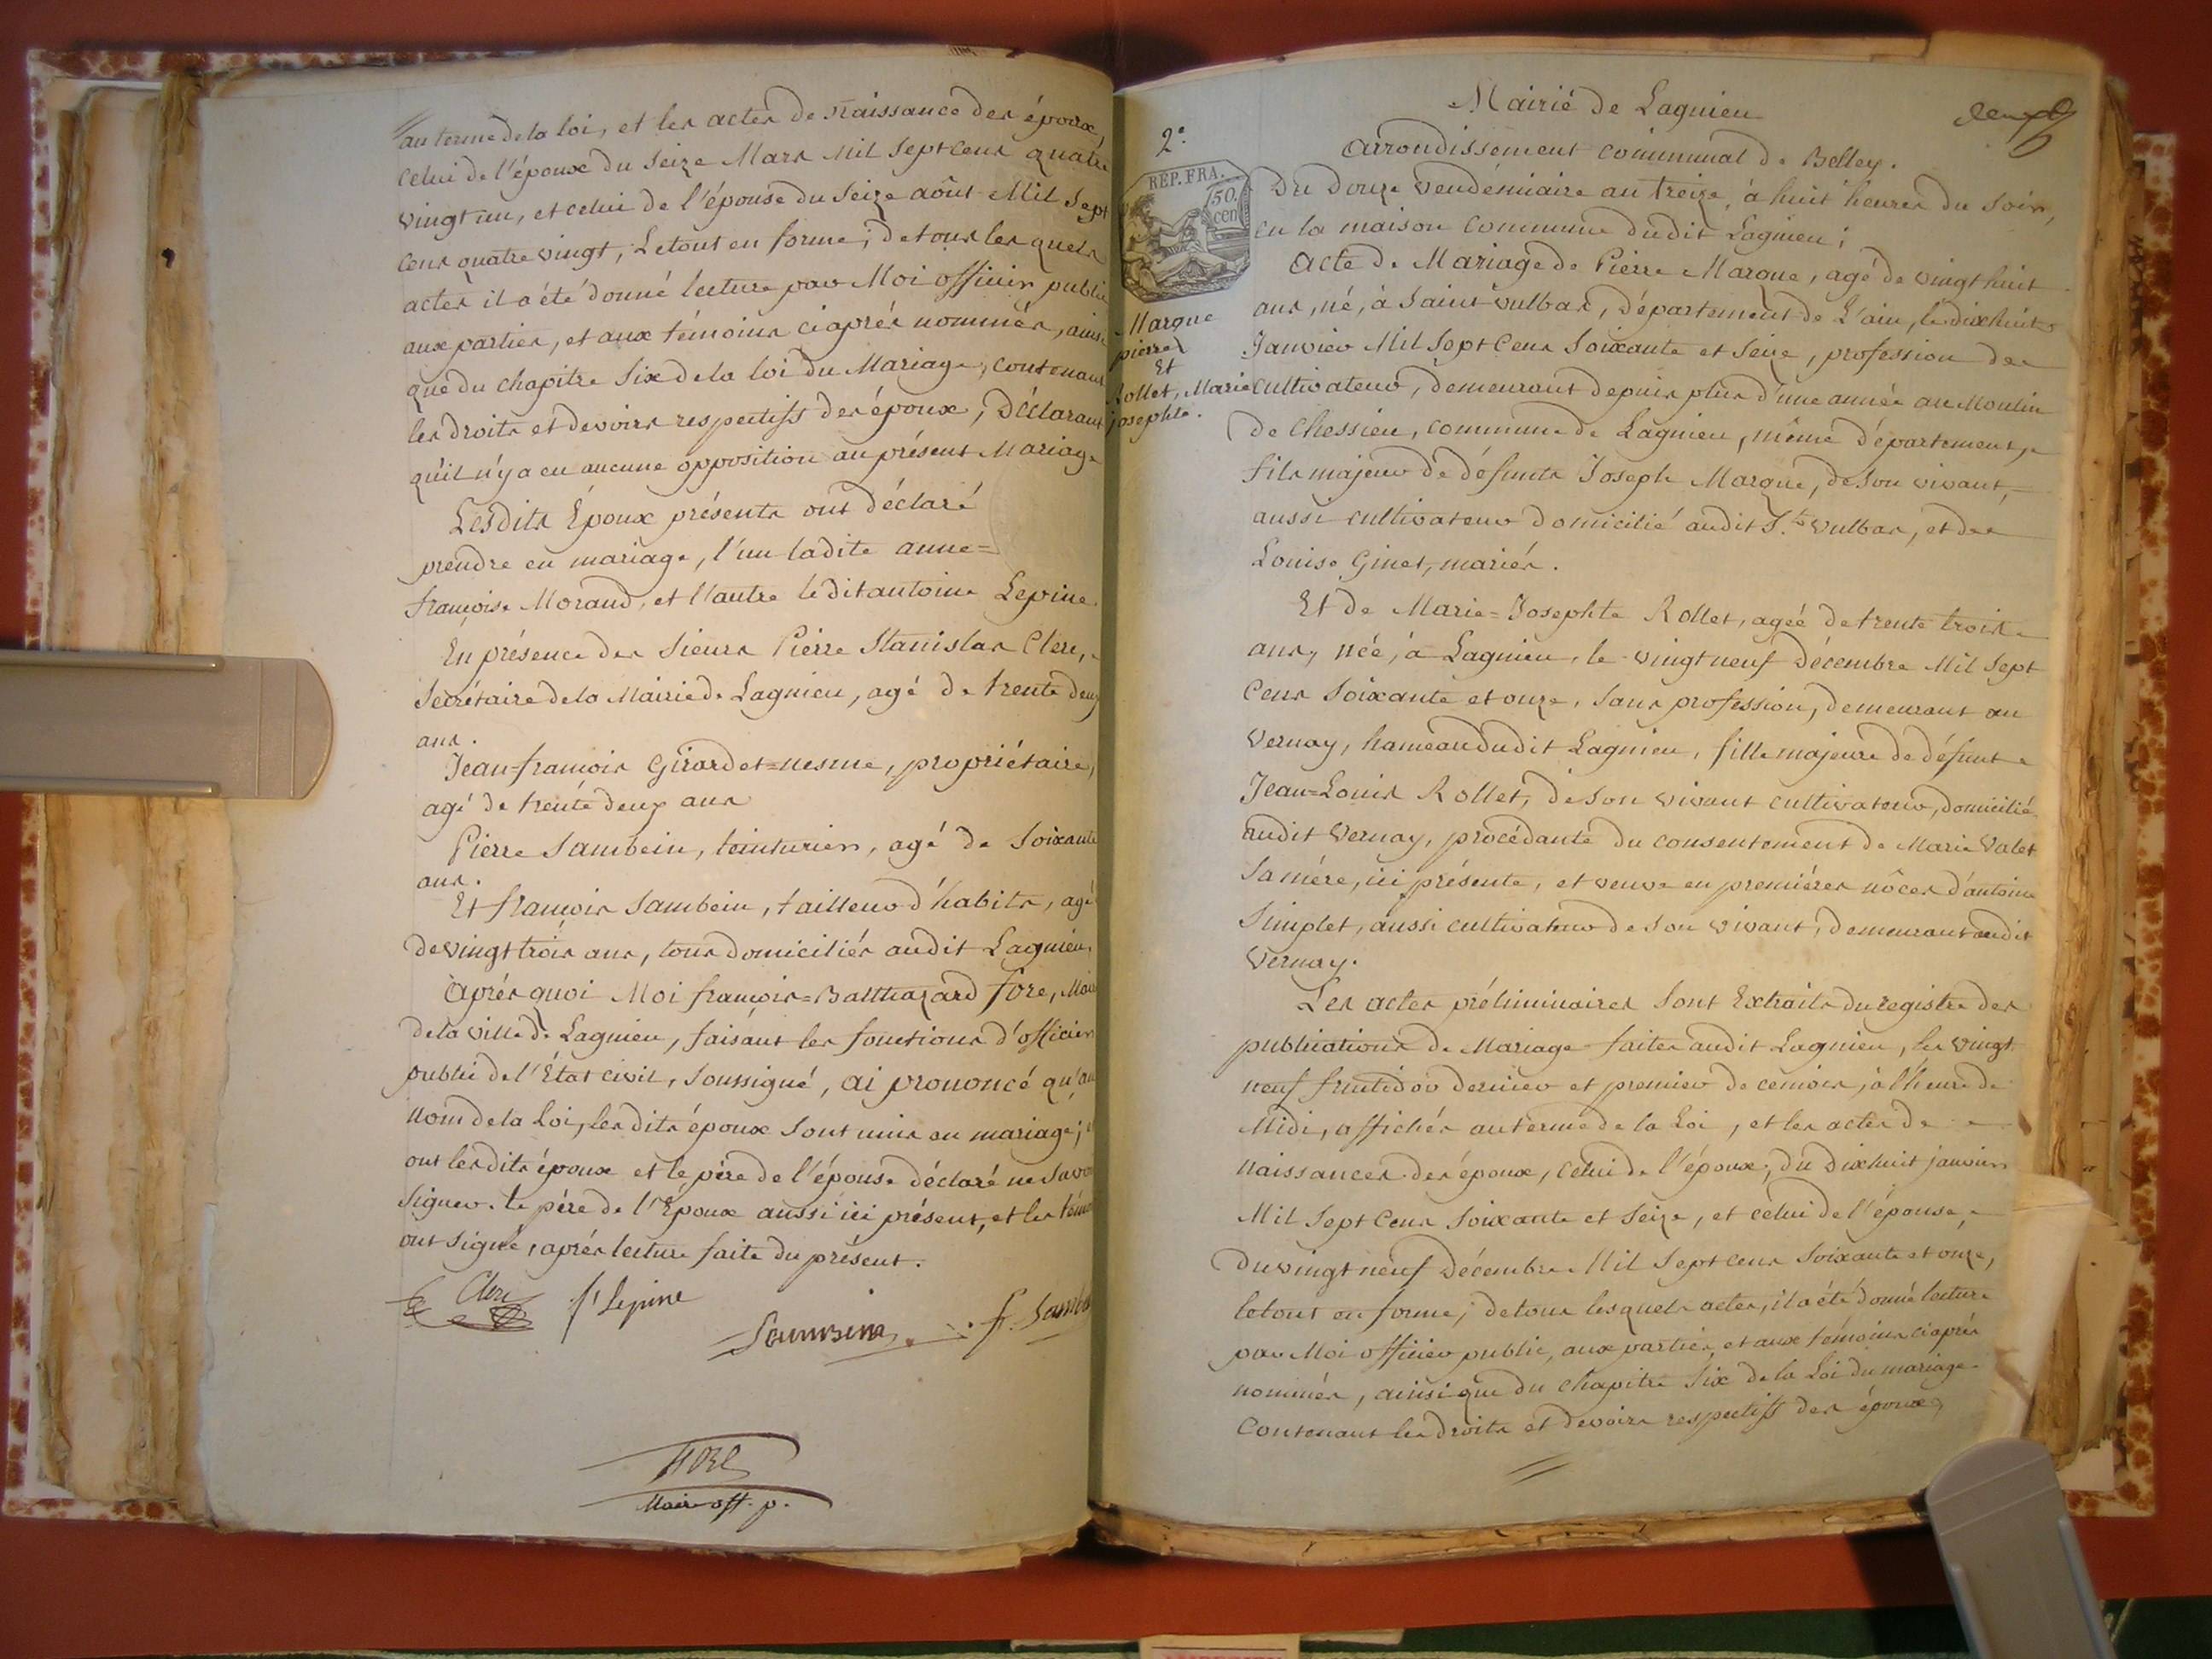 au terme de la loi, et les actes de naissance des époux,
celui de l'époux du seize Mars Mil Sept cens quatre
vingt un, et celui de l'épouse du seize août Mil Sept
cens quatre vingt, Le tout en forme; de tous les quels
actes il a été donné lecture par Moi officier public
aux parties, et aux témoins ci après nommés, ainsi
que du chapitre Six de la loi du Mariage, contenant
les droits et devoirs respectifs des époux, Déclarant
qu'il n'y a eu aucune opposition au présent Mariage
Lesdits Époux présents ont déclaré
prendre en mariage, l'un ladite anne=
françoise Morand, et l'autre le dit antoine Lepine.
En présence des Sieurs Pierre Stanislas Clerc,
Secrétaire de la Mairie de Lagnieu, agé de trente deux
ans.
Jean=françois Girardet=nesme, propriétaire,
agé de trente deux ans
Pierre Sambein, teinturier, agé de Soixante
ans.
Et françois Sambein, tailleur d'habits, agé
de vingt trois ans, tous domiciliés audit Lagnieu.
Après quoi Moi françois=Balthazard fore, Maire
de la ville de Lagnieu, faisant les fonctions d'officier
public de l'État civil, Soussigné, ai prononcé qu'au
nom de la Loi, les dits époux Sont unis en mariage;
ont lesdits époux et le père de l'épouse déclaré ne Savoir
Signer. le père de l'Époux aussi ici présent, et les témoins
ont signé, après lecture faite du présent.
Clerc f Lepine
Sambein f. Sambein
fore
Maire off. p.
Mairie de Lagnieu
deux
2e.
Arrondissement communal de Belley.
RÉP. FRA.
50.
cen
Du Douze Vendémiaire an treize, à huit heures du Soir,
en la maison Commune dudit Lagnieu;
Acte de Mariage de Pierre Marque, agé de vingt huit
ans, né, à Saint Vulbas, Département de L'ain, le dix huit
Janvier Mil Sept Cens Soixante et Seize, profession de
Marque
pierre
Et
Rollet, Marie
josephte.
cultivateur, demeurant depuis plus d'une année au Moulin
de Chessieu, commune de Lagnieu, même Département,
fils majeur de défunts Joseph Marque, de Son vivant,
aussi cultivateur domicilié audit St. Vulbas, et de
Louise Ginet, mariés.
Et de Marie=Josephte Rollet, agée de trente trois
ans, née, à Lagnieu, le vingt neuf Décembre Mil Sept
Cens Soixante et onze, Sans profession, demeurant au
Vernay, hameau dudit Lagnieu, fille majeure de défunt
Jean=Louis Rollet, de Son vivant cultivateur, domicilié
audit Vernay, procédante du consentement de Marie Valet
Sa mère, ici présente, et veuve en premières nôces d'antoine
Simplet, aussi cultivateur de Son vivant, demeurant audit
Vernay.
Les actes préliminaires Sont Extraits du registre des
publications de Mariage faites audit Lagnieu, les vingt
neuf fructidor dernier et premier de ce mois, à l'heure de
Midi, affichés au terme de la Loi, et les actes de
naissances des époux, celui de l'époux, du Dix huit janvier
Mil Sept Cens Soixante et Seize, et celui de l'épouse,
du vingt neuf Décembre Mil Sept cens Soixante et onze,
le tout en forme; de tous lesquels actes, il a été donné lecture
par Moi officier public, aux parties et aux témoins ci après
nommés, ainsi que du chapitre Six de la Loi du mariage
Contenant les droits et devoirs respectifs des époux,